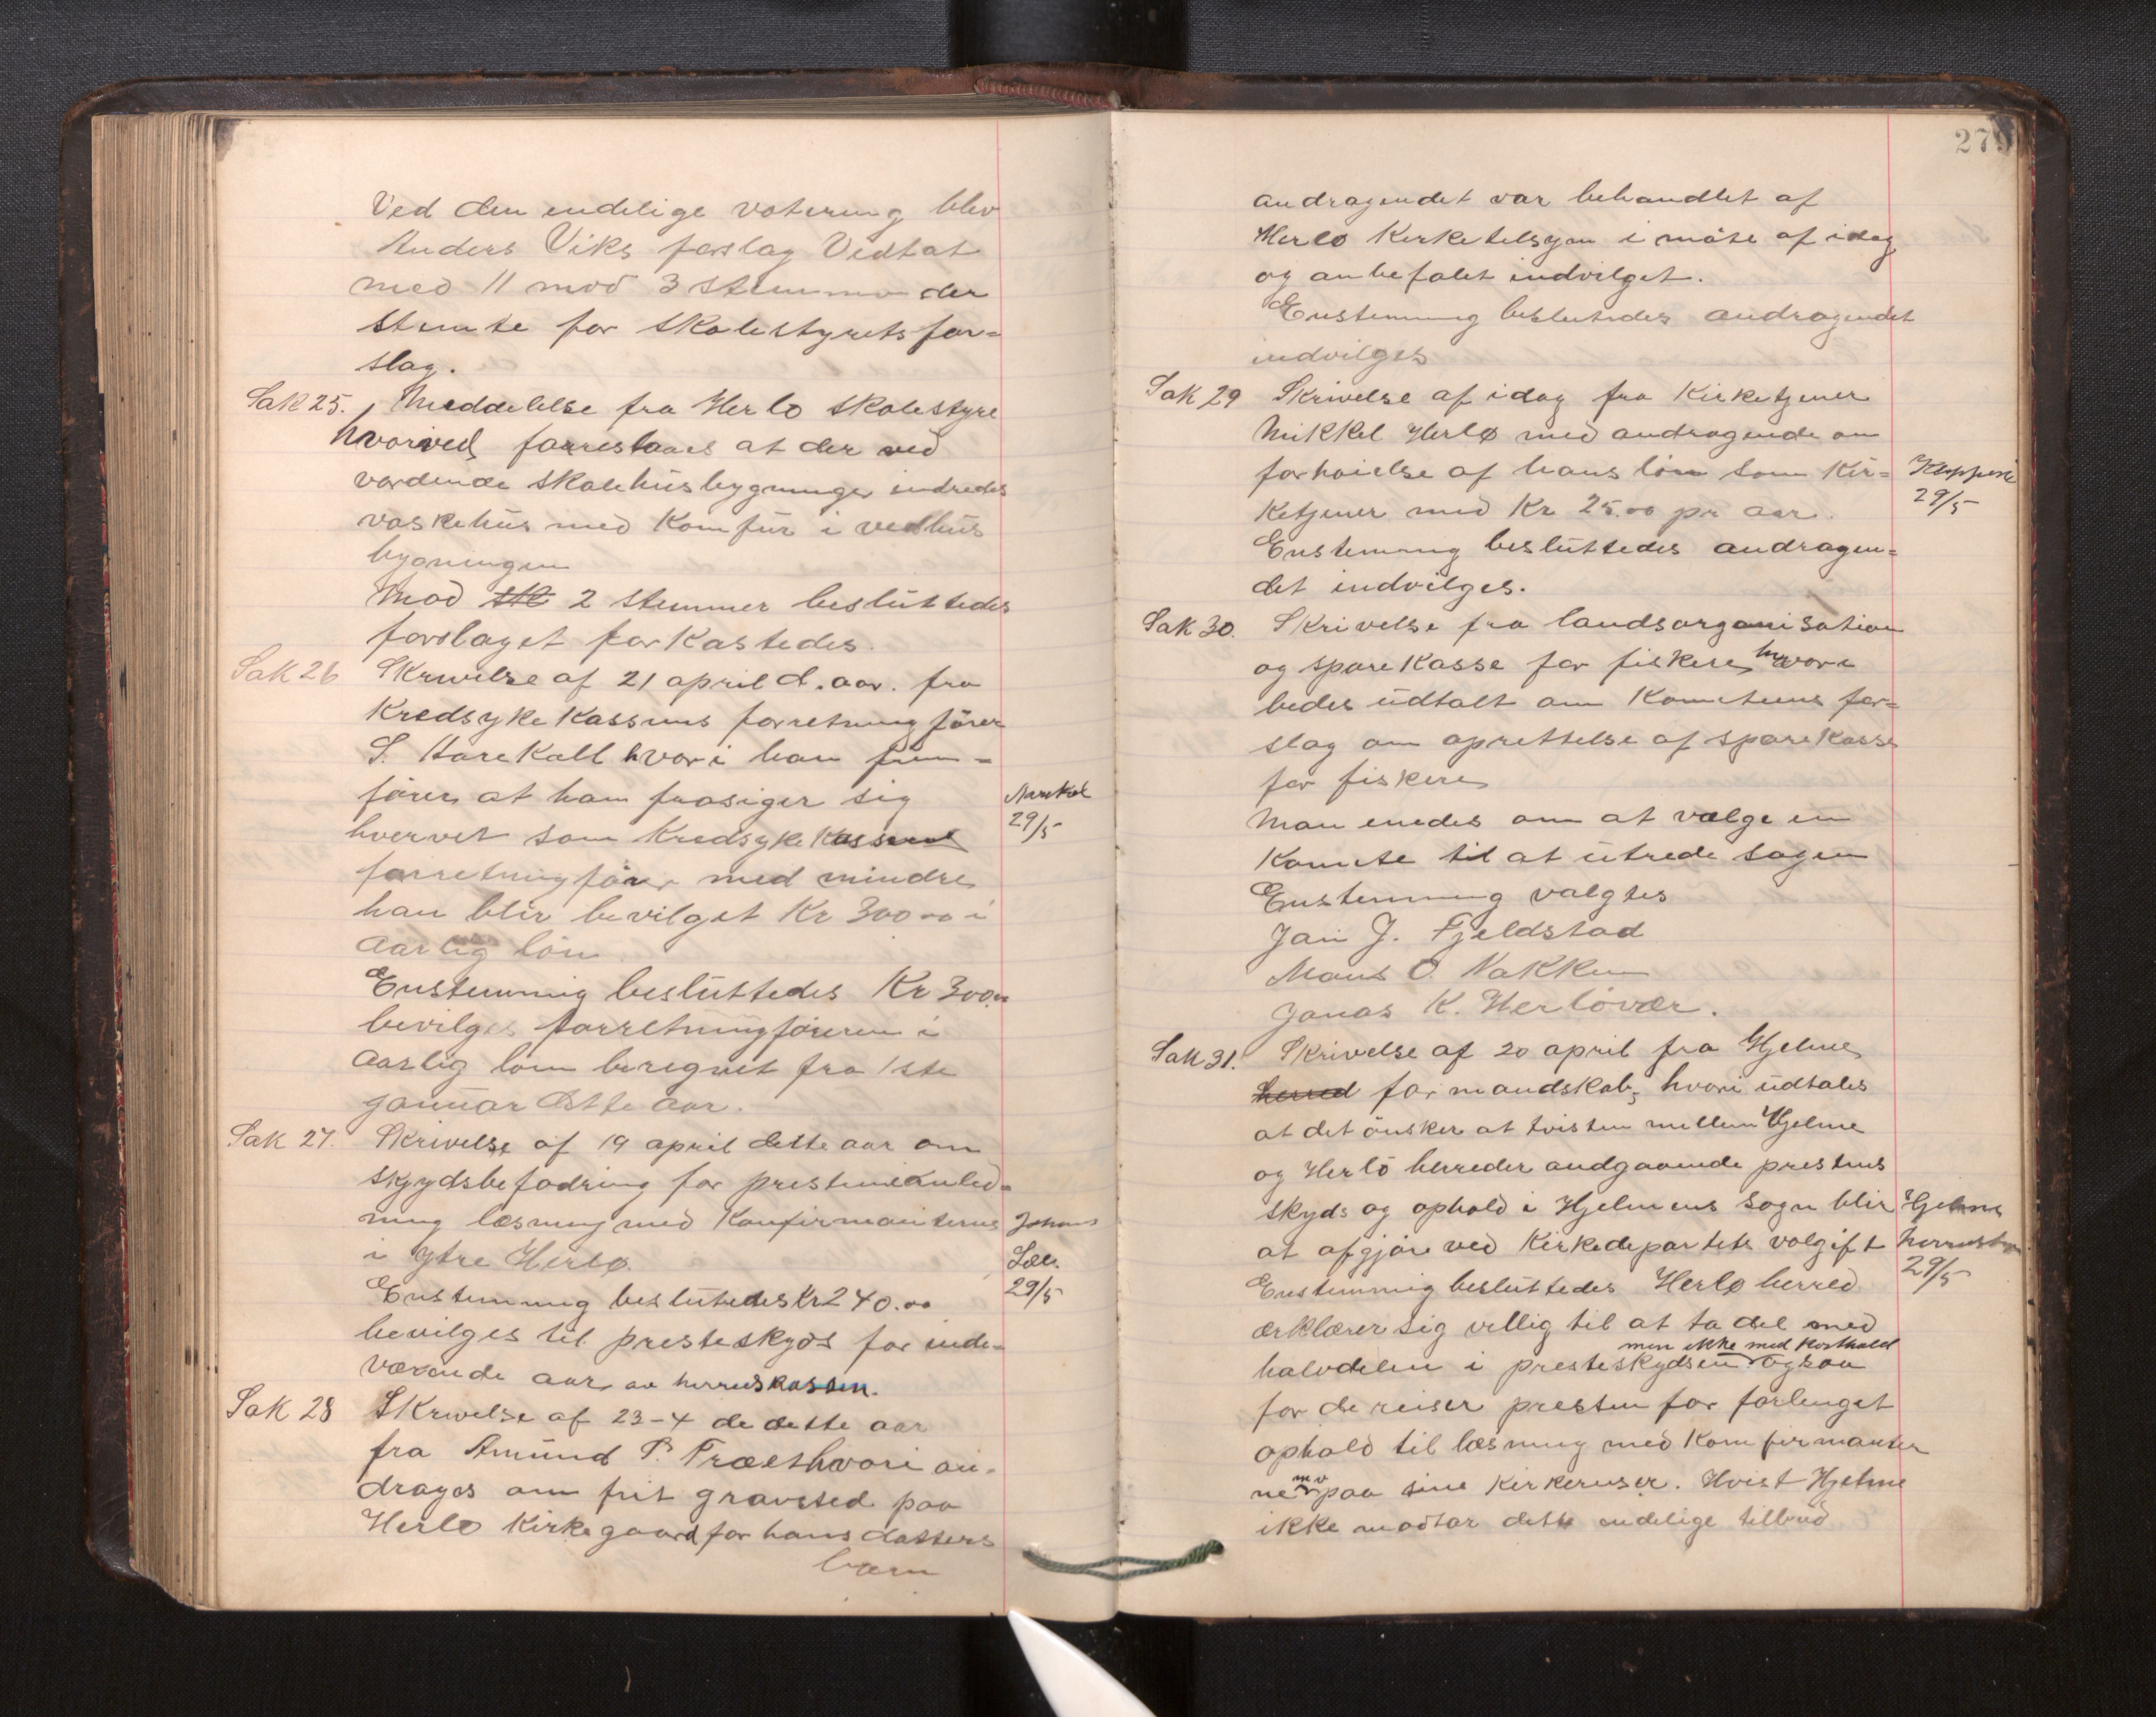 Ved den endelige votering blev
Anders Viks forslag Vedtat
med 11 mod 3 stemmer der
stemte for skolestyrets for-
slag.
Sak 25. Meddelelse fra Herlø skolestyre
hvorved forrestaaes at der ved
vordende skolehusbygninger indredes
vaskehus med Komfür i vedhüs
bygningen
Mod 2 stemmer beslüttedes
forslaget forkastedes.
Sak 26 Skrivelse af 21 april d. aar. fra
Kredsykekassens forretningfører
S. Harekall hvori han frem-
fører at han frasiger sig
hvervet som Kredsykekassens
forretningfører med mindre
han blir bevilget Kr 300 00 i
aarlig løn.
Enstemmig beslüttedes Kr 300.00
bevilges forretningføreren i
aarlig løn beregnet fra 1ste
januar dette aar.
29/5
Sak 27. Skrivelse af 19 april dette aar om
skydsbefodring for presten i anled-
ning læsning med Konfirmanterne
i ytre Herlø.
Enstemmig beslutedes Kr 240.00
bevilges til presteskyds for inde-
værende aar av herreskassen.
Johans
29/5
Sak 28 Skrivelse af 23-4 de dette aar
fra Amünd P. Træet hvori an-
drages om frit gravsted paa
Herlø Kirkegaard for hans datters
barn
279
andragendet var behandlet af
Herlø Kirketilsyn i møte af idag
og anbefalet indvilget.
Enstemmig beslutedes andragendet
indvilges
Sak 29 Skrivelse af idag fra Kirketjener
Mikkel Herlø med andragende om
forhøielse af hans løn som Kir-
ketjener med Kr 25.00 pr aar.
Enstemmig beslüttedes andragen-
det indvilges.
29/5
Sak 30. Skrivelse fra landsorganisation
og sparekasse for fiskere, hvori
bedes üdtalt om Komiteens for-
slag om oprettelse af sparekasse
for fiskere
Man enedes om at vælge en
Komite til at ütrede sagen
Enstemmig valgtes
Jan J. Fjeldstad
Mons O. Nakken
Jonas K. Herløvær.
Sak 31. Skrivelse af 20 april fra Hjelme
herred formandskab, hvori üdtales
at det ønsker at tvisten mellem Hjelme
og Herlø herreder angaaende prestens
skyds og ophold i Hjelmens sogn blir
at afgjøre ved Kirkedepartets volgift
Enstemmig beslüttedes Herlø herred
erklærer sig villig til at ta del med
men ikke med Kosthold
halvdelen i presteskydsen ogsaa
for de reiser presten for forlenget
ophold til læsning med Komfirmanter
ne paa sine Kirkereiser. Hvist Hjelme
ikke modtar dette endelige tilbud
Hjelme
29/5